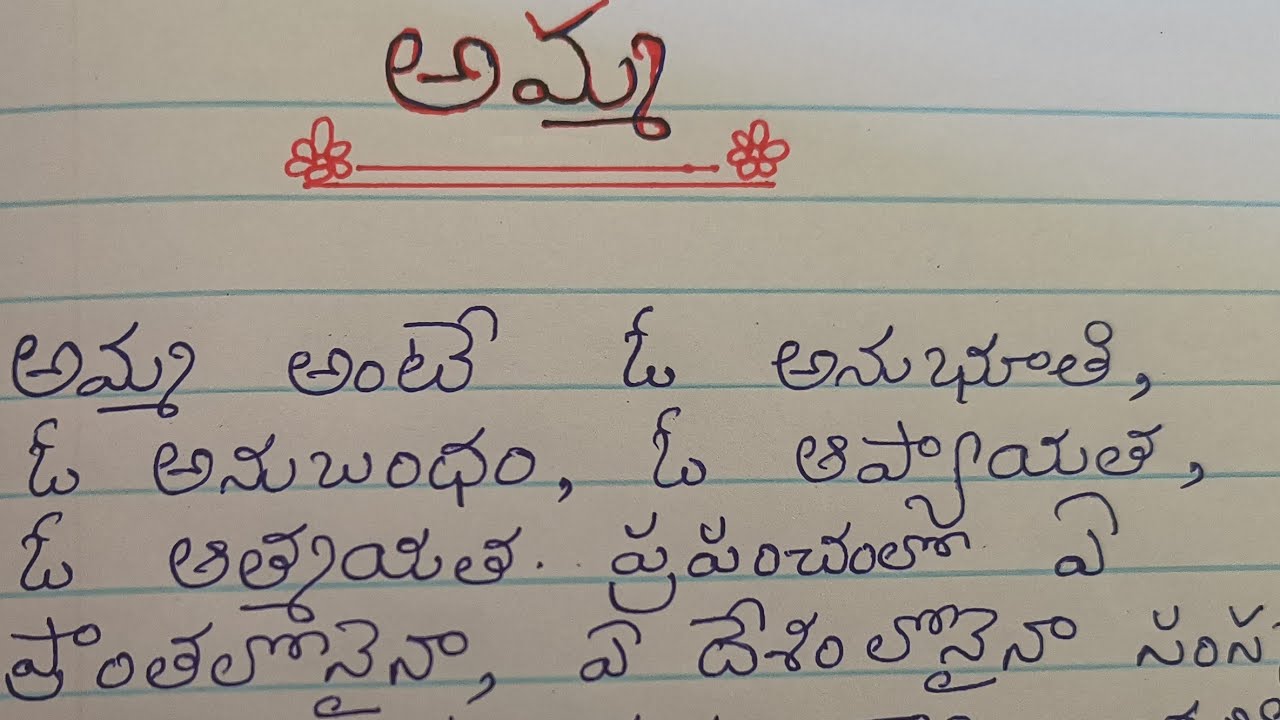 అమ్మ
అమ్మ అంటే ఓ అనుభూతి,
ఓ అనుబంధం, ఓ ఆప్యాయత,
ఓ ఆత్మాయత. ప్రపంచంలో ఏ
ప్రాంతలోనైనా, ఏ దేశంలోనైనా